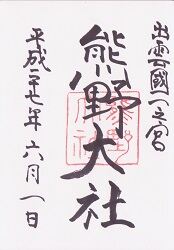 出雲國一之宮
熊野大社
平成二十七年六月一日